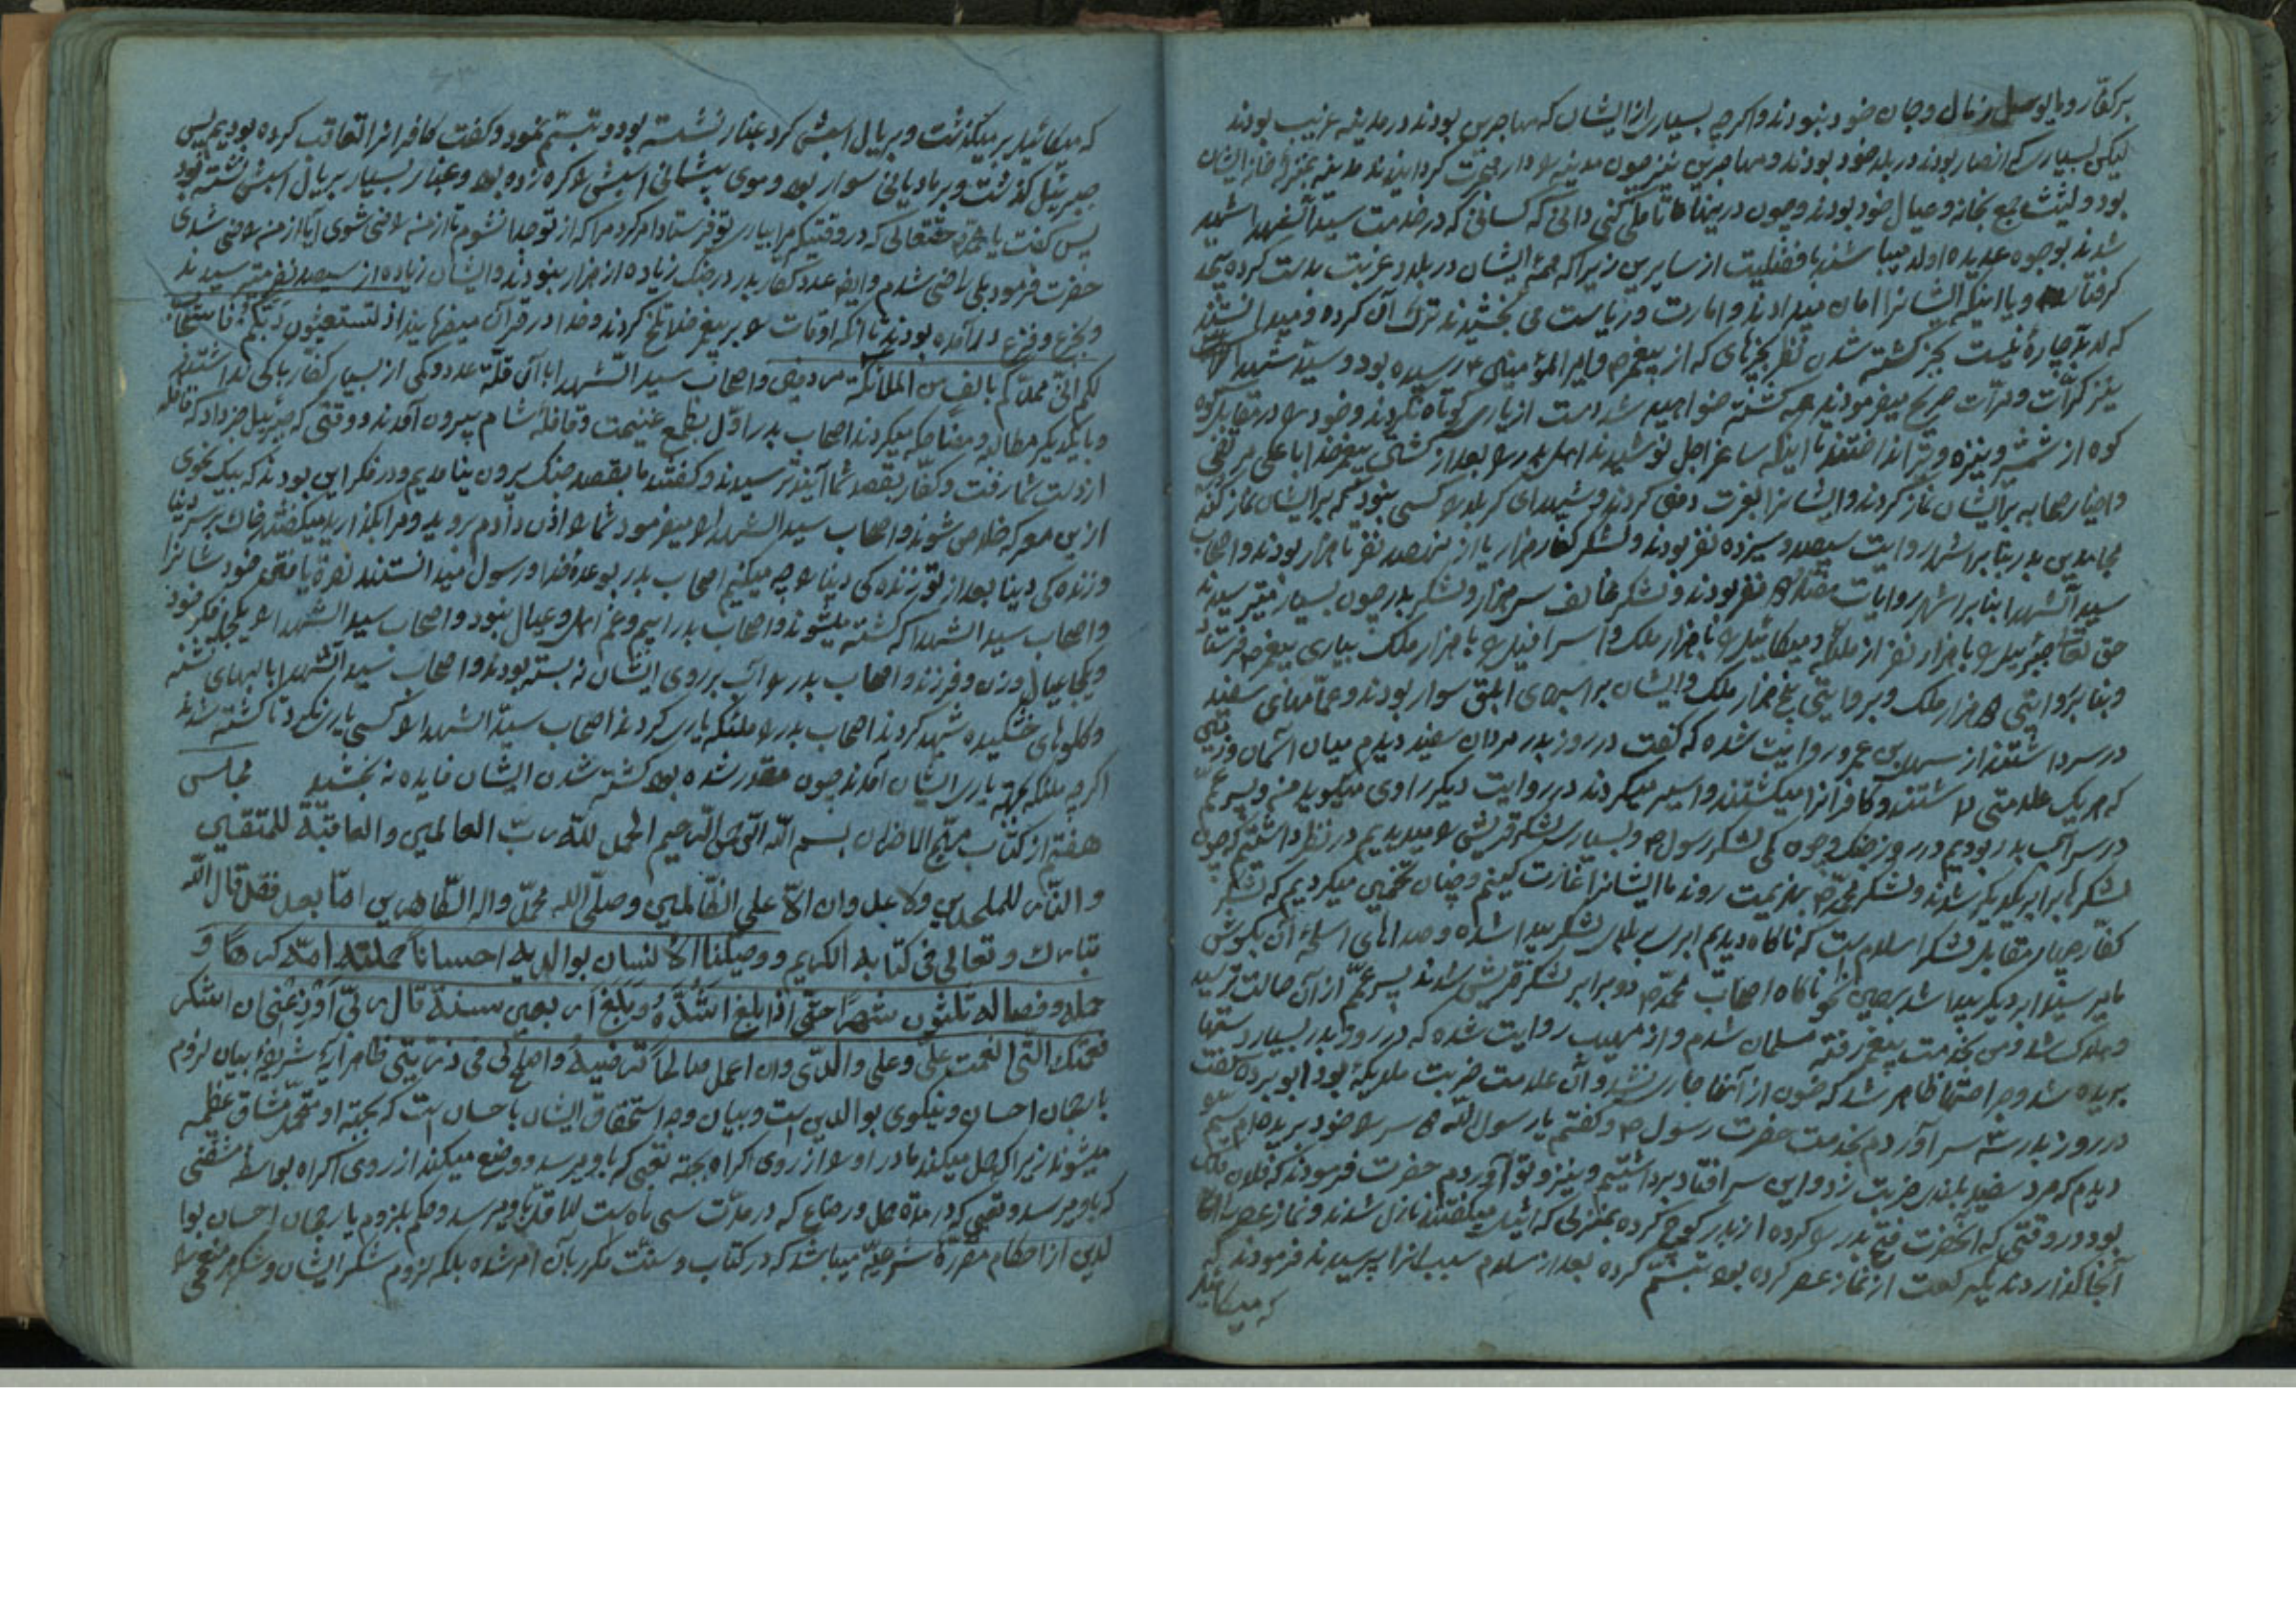 بر کفار و مایوس از مال و جان خود نبودند و اگرچه بسیاری از ایشان که مهاجرین بودند در مدینه غریب بودند
لیکن بسیاری که انصار بودند در بلد خود بودند و مهاجرین نیز چون مدینه را دار هجرت گردانیدند مدینه بمنزله خانه ایشان
بود و لیث جمع بخانه و عیال خود بودند و چون در اینها تامل کنی دانی که کسانی که در خدمت سید الشهدا شهید
شدند بوجوه عدیده اولی میباشند بافضلیت از سایرین زیرا که همهٔ ایشان در بلد غربت
گرفتار و یا اینکه ایشانرا امان میدادند و امارت و ریاست می بخشیدند ترک آن کرده و میدانستند
که لابد چارهٔ نیست بجز کشته شدن نظر بخبرهای که از پیغمبر ص و امیر المؤمنین ع رسیده بود و سید شهدا
نیز کرات و مرات صریح میفرمودند همه کشته خواهید شد دست از یاری کوتاه نکردند و خود را در مقابل کوه
کوه از شمشیر و نیزه و تیر انداختند تا اینکه ساغر اجل نوشیدند اهل بدر را بعد از کشتن پیغمبر خدا با علی مرتضی
و اخیار صحابه بر ایشان نماز کردند و ایشانرا بعزت دفن کردند و شهدای کربلا را کسی نبود که بر ایشان نماز کند
مجاهدین بدر بنا بر اشهر روایت سیصد و سیزده نفر بودند و لشکر کفار هزار یا از نهصد نفر تا هزار بودند و اصحاب
سید الشهدا بنا بر اشهر روایات هفتاد و دو نفر بودند و لشکر مخالف سی هزار و لشکر بدر چون بسیار متغیر شدند
حق تعالی جبرئیل را با هزار نفر از ملائکه و میکائیل را با هزار ملک و اسرافیل را با هزار ملک بیاری پیغمبر ص فرستاد
و بنا بروایتی ۳ هزار ملک و بروایتی پنج هزار ملک و ایشان بر اسبهای ابلق سوار بودند و عمامهای سفید
در سر داشتند از سهل بن عمرو روایت شده که گفت در روز بدر مردان سفید دیدم میان آسمان و زمین
که هر یک علامتی داشتند و کافرانرا میکشتند و اسیر میکردند در روایت دیگر راوی میگوید من و پسر عمم
در سر آب بدر بودیم در روز جنگ و چون کمی لشکر رسول ص و بسیاری لشکر قریش را میدیدیم در نظر داشتیم که چون
لشکرها برابر یکدیگر شدند و لشکر محمد ص بهزیمت روند ما ایشانرا غارت کنیم و چنان تخمین میکردیم که لشکر
کفار چهار مقابل لشکر اسلام است که ناگاه دیدیم ابری بالای لشکر پیدا شده و صداهای اسلحه از آن بگوش
ما میرسید ابر دیگر پیدا شد بهمین نحو ناگاه اصحاب محمد ص دو برابر لشکر قریش شدند پسر عمم از آن حالت ترسید
و هلاک شد و من بخدمت پیغمبر رفته مسلمان شدم و از صهیب روایت شده که در روز بدر بسیار دستها
بریده شد و جراحتها ظاهر شد که خون از آنها جاری نشد و آن علامت ضربت ملائکه بود ابو برده گفت
در روز بدر سه سر آوردم بخدمت حضرت رسول ص و گفتم یا رسول الله دو سر را خود بریده‌ام و سیم را
دیدم که مرد سفید بلندی ضربت زد و این سر افتاد برداشتم و بنزد تو آوردم حضرت فرمودند که فلان ملک
بود و در وقتی که آنحضرت فتح بدر را کرده از بدر کوچ کرده بمنزلی که اثیل میگفتند نازل شدند و نماز عصر را
آنجا گذاردند یک رکعت از نماز عصر کرده بود تبسم کرده بعد از سلام سبب آنرا پرسیدند فرمودند که
که میکائیل
که میکائیل بر من گذشت و بر بال اسبش گرد غبار نشسته بود و تبسم نمود و گفت کافرانرا تعاقب کرده بودیم پس
جبرئیل گذشت و بر مادیانی سوار بود و موی پیشانی اسبش را گره زده بود و غبار بسیار بر یال اسبش نشسته بود
پس گفت یا محمد ص حقتعالی که در وقتیکه مرا بیاری تو فرستاد امر کرد مرا که از تو جدا نشوم تا از من راضی شوی آیا از من راضی شدی
حضرت فرمود بلی راضی شدم و ایضا عدد کفار بدر در جنگ زیاده از هزار نبودند و ایشان زیاده از سیصد نفر میترسیدند
و بجزع و فزع درآمده بودند تا آنکه اوقات را بر پیغمبر خدا تلخ کردند و خدا در قرآن میفرماید اذ تستغیثون ربکم فاستجاب
لکم انی ممدکم بالف من الملائکة مردفین و اصحاب سید الشهدا با آن قلّة عدد و کمی از بسیاری کفار باکی نداشتند
و با یکدیگر مطایبه و مضاحکه میکردند اصحاب بدر اول بطمع غنیمت و قافله شام بیرون آمدند و وقتی که جبرئیل خبر داد که قافله
از دست شما رفت و کفار بقصد شما آیند ترسیدند و گفتند ما بقصد جنگ بیرون نیامدیم و در فکر این بودند که بیک نحوی
ازین معرکه خلاص شوند و اصحاب سید الشهدا را میفرمود شما را اذن دادم بروید و مرا بگذارید میگفتند خاک بر سر دنیا
و زنده‌کی دنیا بعد از تو زنده‌کی دنیا را چه میکنیم اصحاب بدر بوعدهٔ خدا و رسول میدانستند نصرة یافتن خود شانرا
و اصحاب سید الشهدا که کشته میشوند و اصحاب بدر را بیم و غم اهل و عیال نبود و اصحاب سید الشهدا را یکجا فکر خود
و یکجا عیال و زن و فرزند و اصحاب بدر را آب بر روی ایشان نه بسته بودند و اصحاب سید الشهدا با لبهای تشنه
و گلوهای خشکیده شهید کردند اصحاب بدر را ملائکه یاری کردند اصحاب سید الشهدا را کسی یاری نکرد تا کشته شدند
اگرچه ملائکه بجهة یاری ایشان آمدند چون مقدر شده بود کشته شدن ایشان فایده نه بخشید مجلس
هفتم از کتاب مهیج الاحزان بسم الله الرحمن الرحیم الحمد لله رب العالمین و العاقبة للمتقین
و النار للملحدین و لا عدوان الا علی الظالمین و صلی الله محمد و اله الطاهرین اما بعد فقد قال الله
تبارک و تعالی فی کتابه الکریم و وصینا الانسان بوالدیه احسانا حملته امه کرها و
حمله و فصاله ثلثون شهرا حتی اذا بلغ اشده و بلغ اربعین سنة قال رب اوزعنی ان اشکر
نعمتک التی انعمت علی و علی والدی و ان اعمل صالحا ترضیه و اصلح لی فی ذریتی ظاهر آیهٔ شریفه بیان لزوم
یا رجحان احسان و نیکوی بوالدین است و بیان وجه استحقاق ایشان باحسان است که بجهة او متحمل مشاق عظیمه
میشوند زیرا که حمل میکند مادر او را از روی اکراه بجهة تعبی که باو میرسد و وضع میکند از روی اکراه بواسطه مشقتی
که باو میرسد و تعبی که در مدة حمل و رضاع که در مدت سی ماه است لا اقل باو میرسد و حکم بلزوم یا رجحان احسان بوا
لدین از احکام مقررهٔ شرعیه میباشد که در کتاب و سنت مکرر بآن امر شده بلکه لزوم شکر ایشان و شکر هر منعمی را